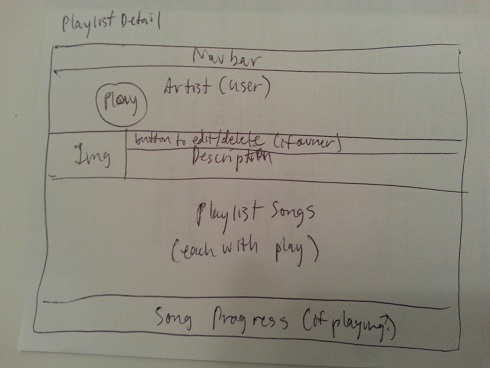 Playlist Detail
Navbar
Artist (user)
Play
button to edit/delete (if owner)
Img
Description
Playlist Songs
(each with play)
Song Progress (if playing?)